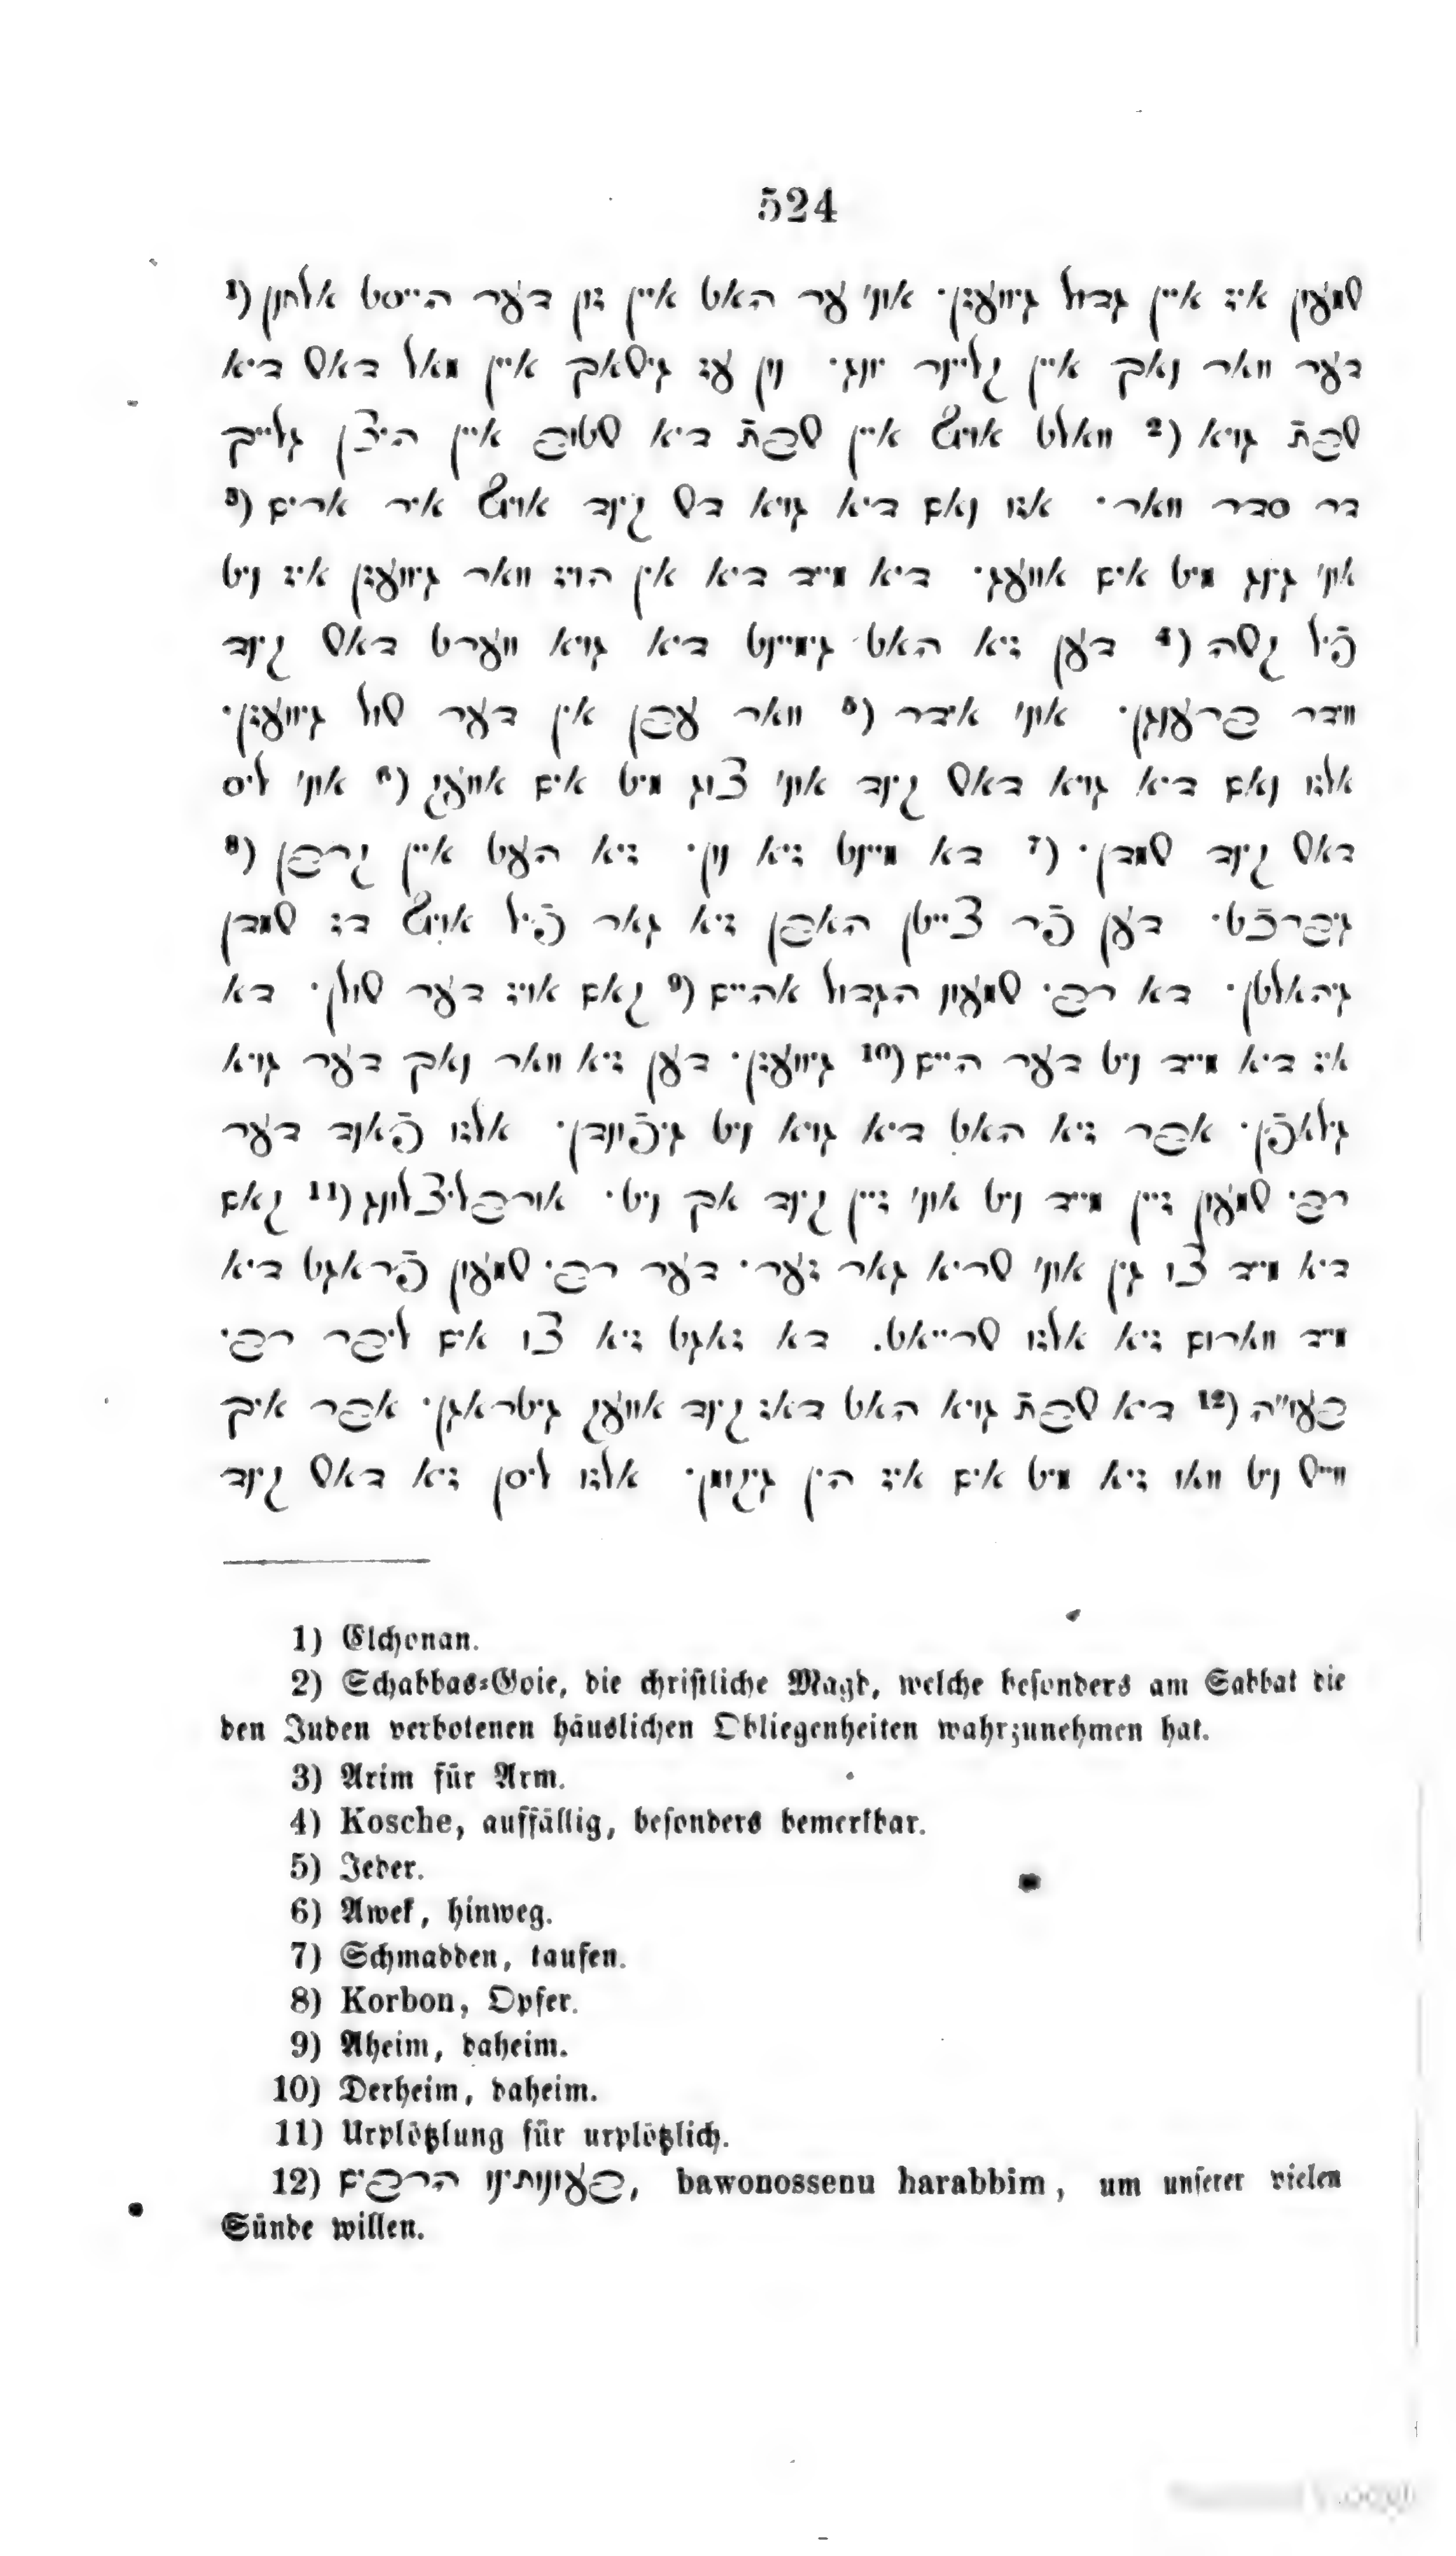 524
שמעון איז איין גדול גיוועזן· אונ' ער האט איין זון דער הייסט אלחנן (1
דער וואר נאך איין קליינר יונג· נון עז גישאך איין מאל דאש דיא
שבת גויא (2 וואלט אויף איין שבת דיא שטוב איין היצן גלייך
דר סדר וואר· אזו נאם דיא גויא דש קינד אויף איר ארים (3
אונ' גינג מיט אים אוועג· דיא מייד דיא אין הויז וואר גיוועזן איז ניט
פֿיל קשה (4 דען זיא האט גימיינט דיא גויא ווערט דאש קינד
ווידר ברענגן· אונ' אידר (5 וואר עבן אין דער שול גיוועזן·
אלזו נאם דיא גויא דאש קינד אונ' צוג מיט אים אוועק (6 אונ' ליס
דאש קינד שמדן· (7 דא מיינט זיא נון· זיא העט איין קרבן (8
גיברכֿט· דען פֿר צייטן האבן זיא גאר פֿיל אויף דז שמדן
גיהאלטן· דא רב· שמעון הגדול אהיים (9 קאם אויז דער שולן· דא
איז דיא מייד ניט דער היים (10 גיוועזן· דען זיא וואר נאך דער גויא
גילאפֿן· אבר זיא האט דיא גויא ניט גיפֿונדן· אלזו פֿאנד דער
רב· שמעון זיין מייד ניט אונ' זיין קינד אך ניט· אורבליצלונג (11 קאם
דיא מייד צו גין אונ' שריא גאר זער· דער רב· שמעון פֿראגט דיא
מייד ווארום זיא אלזו שרייאט. דא זאגט זיא צו אים ליבר רב·
בעו"ה (12 דיא שבת גויא האט דאז קינד אוועק גיטראגן· אבר איך
ווייש ניט וואו זיא מיט אים איז הין גיקומן· אלזו ליסן זיא דאש קינד
1) Elchonan.
2) Schabbas-Goie, die christliche Magd, welche besonders am Sabbat die
den Juden verbotenen häuslichen Obliegenheiten wahrzunehmen hat.
3) Arim für Arm.
4) Kosche, auffällig, besonders bemerkbar.
5) Jeder.
6) Awek, hinweg.
7) Schmadden, taufen.
8) Korbon, Opfer.
9) Aheim, daheim.
10) Derheim, daheim.
11) Urplötzlung für urplötzlich.
12) בעונותינו הרבים, bawonossenu harabbim, um unserer vielen
Sünde willen.